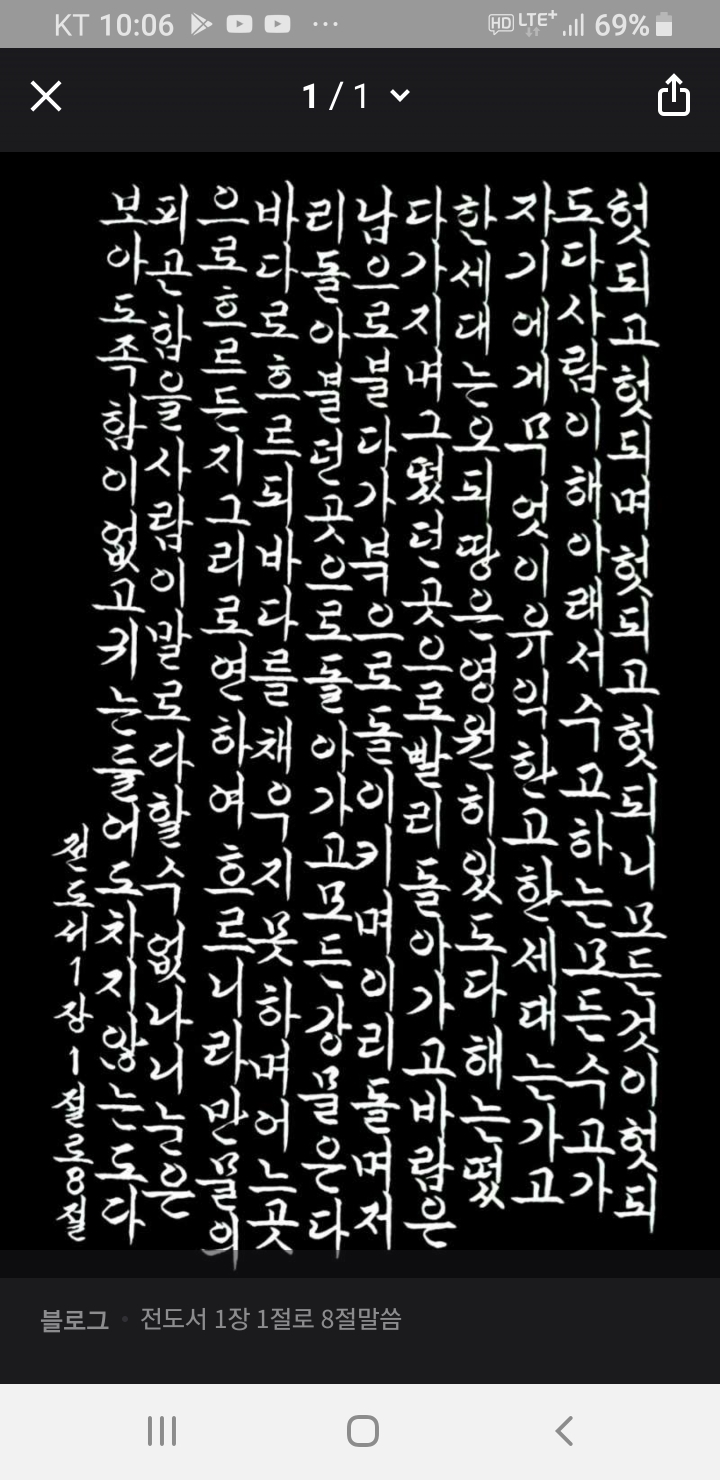 KT 10:06 ... HD LTE+ 69%
1 / 1
헛되고헛되며헛되고헛되니모든것이헛되
도다사람이해아래서수고하는모든수고가
자기에게무엇이유익한고한세대는가고
한세대는오되땅은영원히있도다해는떴
다가지며그떴던곳으로빨리돌아가고바람은
남으로불다가북으로돌이키며이리돌며저
리돌아불던곳으로돌아가고모든강물은다
바다로흐르되바다를채우지못하며어느곳
으로흐르든지그리로연하여흐르니라만물의
피곤함을사람이말로다할수없나니눈은
보아도족함이없고귀는들어도차지않는도다
전도서1장1절로8절
블로그 · 전도서 1장 1절로 8절말씀